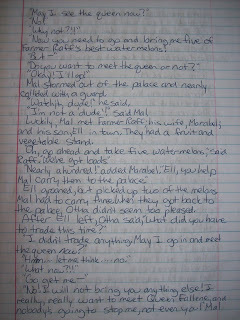 "May I see the queen now?"
"No!"
"Why not?!"
"Now you need to go and bring me five of
Farmer Raff's best watermelons."
"But -"
"Do you want to meet the queen or not?"
"Okay! I'll go!"
Mal stormed out of the palace and nearly
collided with a guard.
"Watch it, dude!" he said.
"I'm not a dude!" said Mal.
Luckily, Mal met Farmer Raff, his wife, Marabel,
and his son, Ell in town. They had a fruit and
vegetable stand.
"Oh, go ahead and take five watermelons," said
Raff. "We've got loads"
"Nearly a hundred!" added Marabel. "Ell, you help
Mal carry them to the palace."
Ell groaned, but picked up two of the melons.
Mal had to carry three. When they got back to
the palace, Otha didn't seem too pleased.
After Ell left, Otha said, "What did you have
to trade this time?"
"I didn't trade anything. May I go in and meet
the queen now?"
"Hmm - let me think - no."
"What now?!"
"Go get me-"
"No! I will not bring you anything else! I
really, really want to meet Queen, and
nobody's going to stop me, not even you!" Mal